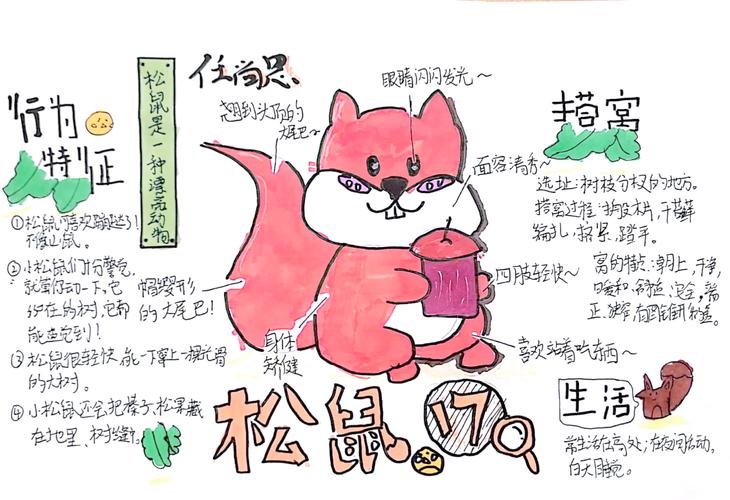 任尚思
松鼠是一种漂亮动物
行为
特征
①松鼠喜欢
不像山鼠。
②小松鼠们十分警觉,
就算你动一下,它
所在的树,它都
能查觉到!
③松鼠很轻快,能一下窜上一棵光滑
的大树。
④小松鼠还会把榛子、松果藏
在地里、树缝。
翘到头顶的
大尾巴~
眼睛闪闪发光~
面容清秀~
四肢轻快~
喜欢站着吃东西~
帽缨形
的大尾巴!
身体
矫健
搭窝
选址:树枝分杈的地方。
搭窝过程:搬木片,干藓
编扎,挤紧,踏平。
窝的特点:朝上,干净,
暖和、舒适、安全,端
正、狭窄,有圆锥形盖。
生活
常生活在高处;在夜间活动,
白天睡觉。
松鼠
17